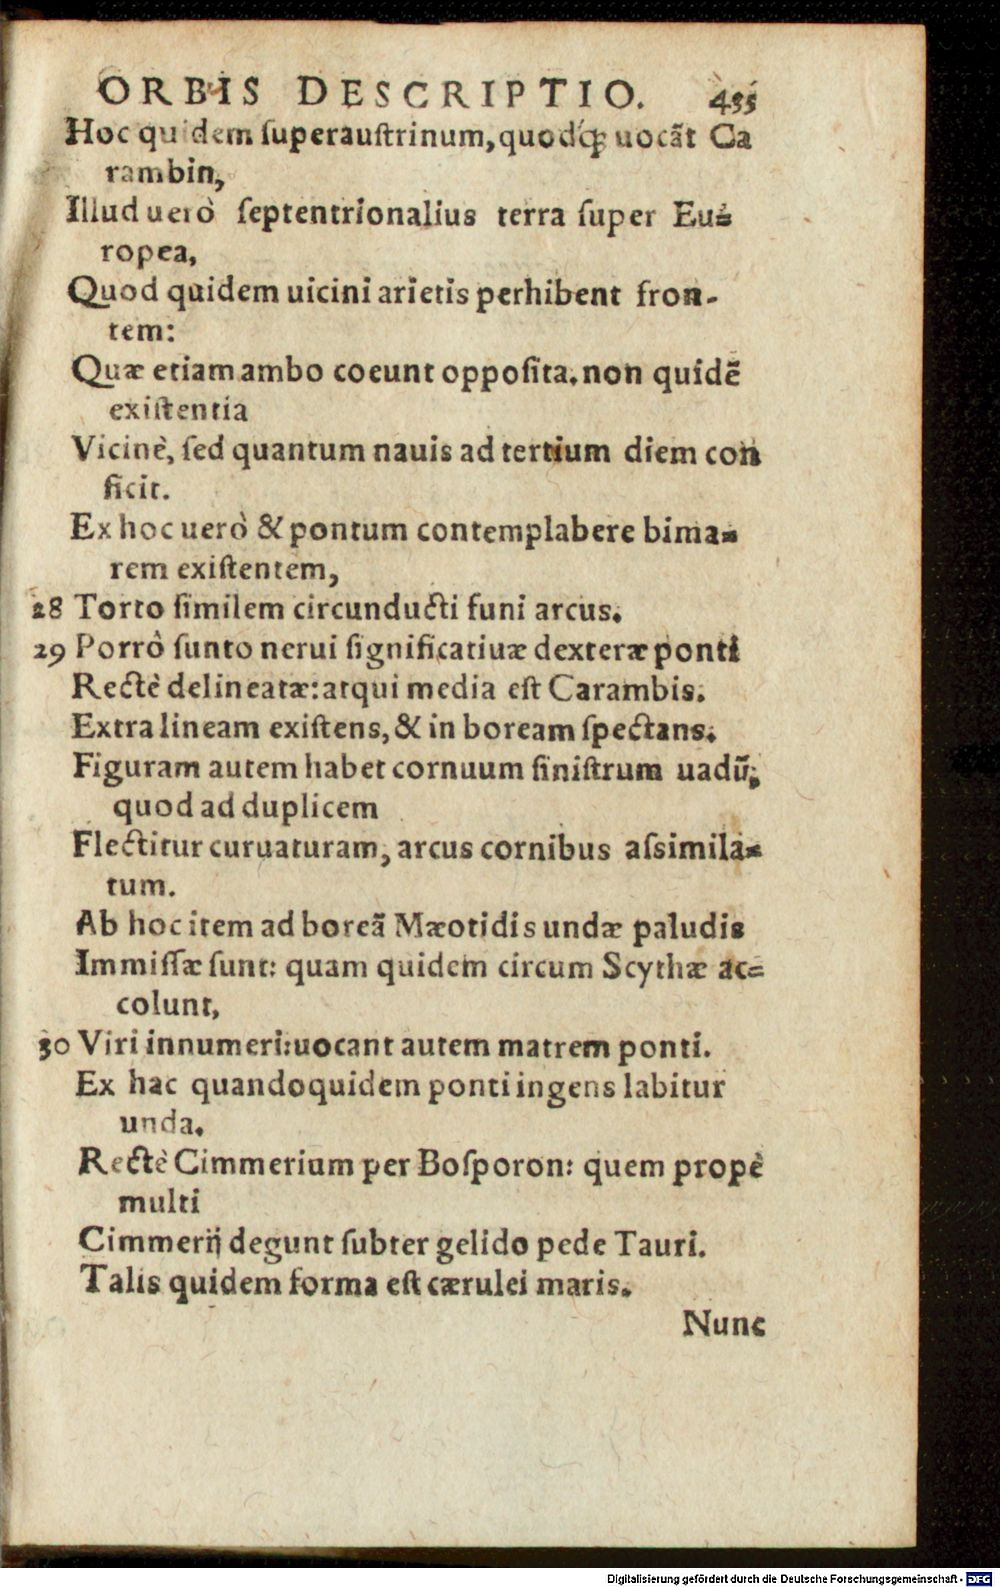 ORBIS DESCRIPTIO. 455
Hoc quidem ſuperauſtrinum, quodq́; uocāt Ca
rambin,
Illud uerò ſeptentrionalius terra ſuper Eu-
ropea,
Quod quidem uicini arietis perhibent fron-
tem:
Quæ etiam ambo coeunt oppoſita. non quidē
exiſtentia
Vicinè, ſed quantum nauis ad tertium diem con
ficit.
Ex hoc uerò & pontum contemplabere bima-
rem exiſtentem,
28 Torto ſimilem circunducti funi arcus.
29 Porrò ſunto nerui ſignificatiuæ dexteræ ponti
Rectè delineatæ: atqui media eſt Carambis.
Extra lineam exiſtens, & in boream ſpectans.
Figuram autem habet cornuum ſiniſtrum uadū;
quod ad duplicem
Flectitur curuaturam, arcus cornibus aſsimila-
tum.
Ab hoc item ad boreā Mæotidis undæ paludis
Immiſſæ ſunt: quam quidem circum Scythæ ac-
colunt,
30 Viri innumeri: uocant autem matrem ponti.
Ex hac quandoquidem ponti ingens labitur
unda.
Rectè Cimmerium per Boſporon: quem propè
multi
Cimmerij degunt ſubter gelido pede Tauri.
Talis quidem forma eſt cærulei maris.
Nunc
Digitalisierung gefördert durch die Deutsche Forschungsgemeinschaft - DFG